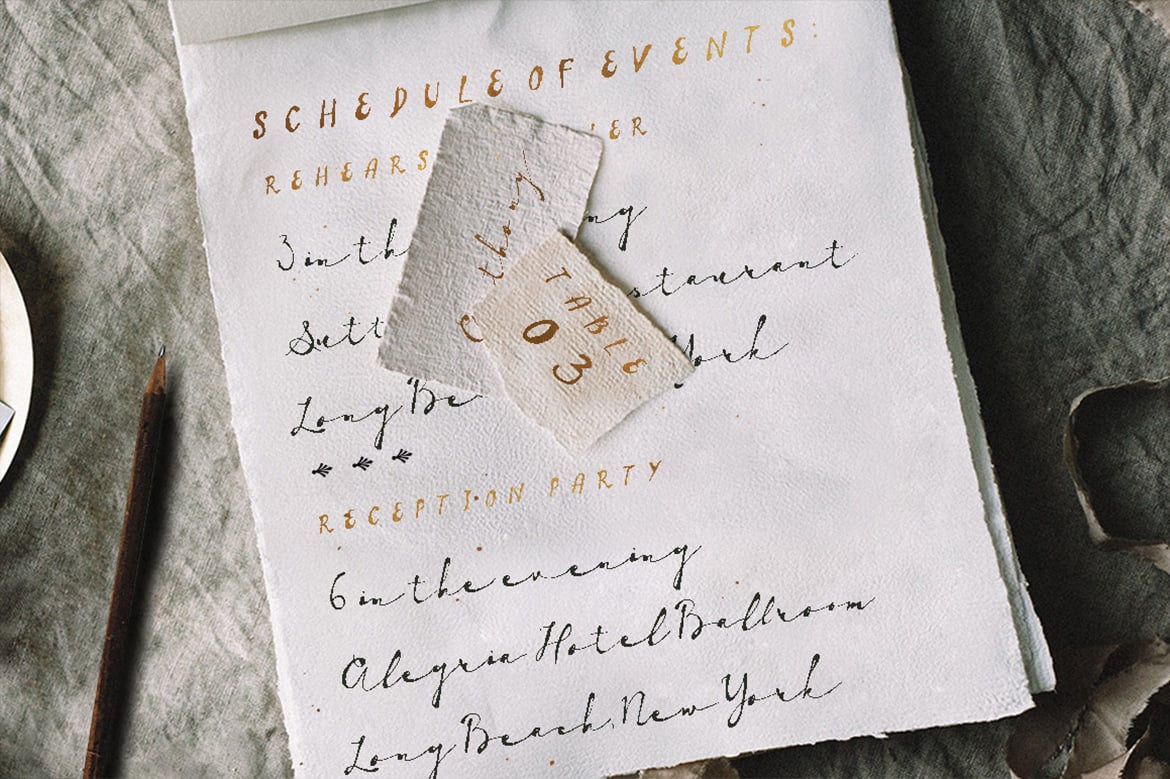 SCHEDULE OF EVENTS:
REHEARS ER
3 in th ng
Sutt staurant
Long Be York
RECEPTION PARTY
6 in the evening
Alegria Hotel Ballroom
Long Beach, New York
thony
TABLE
03